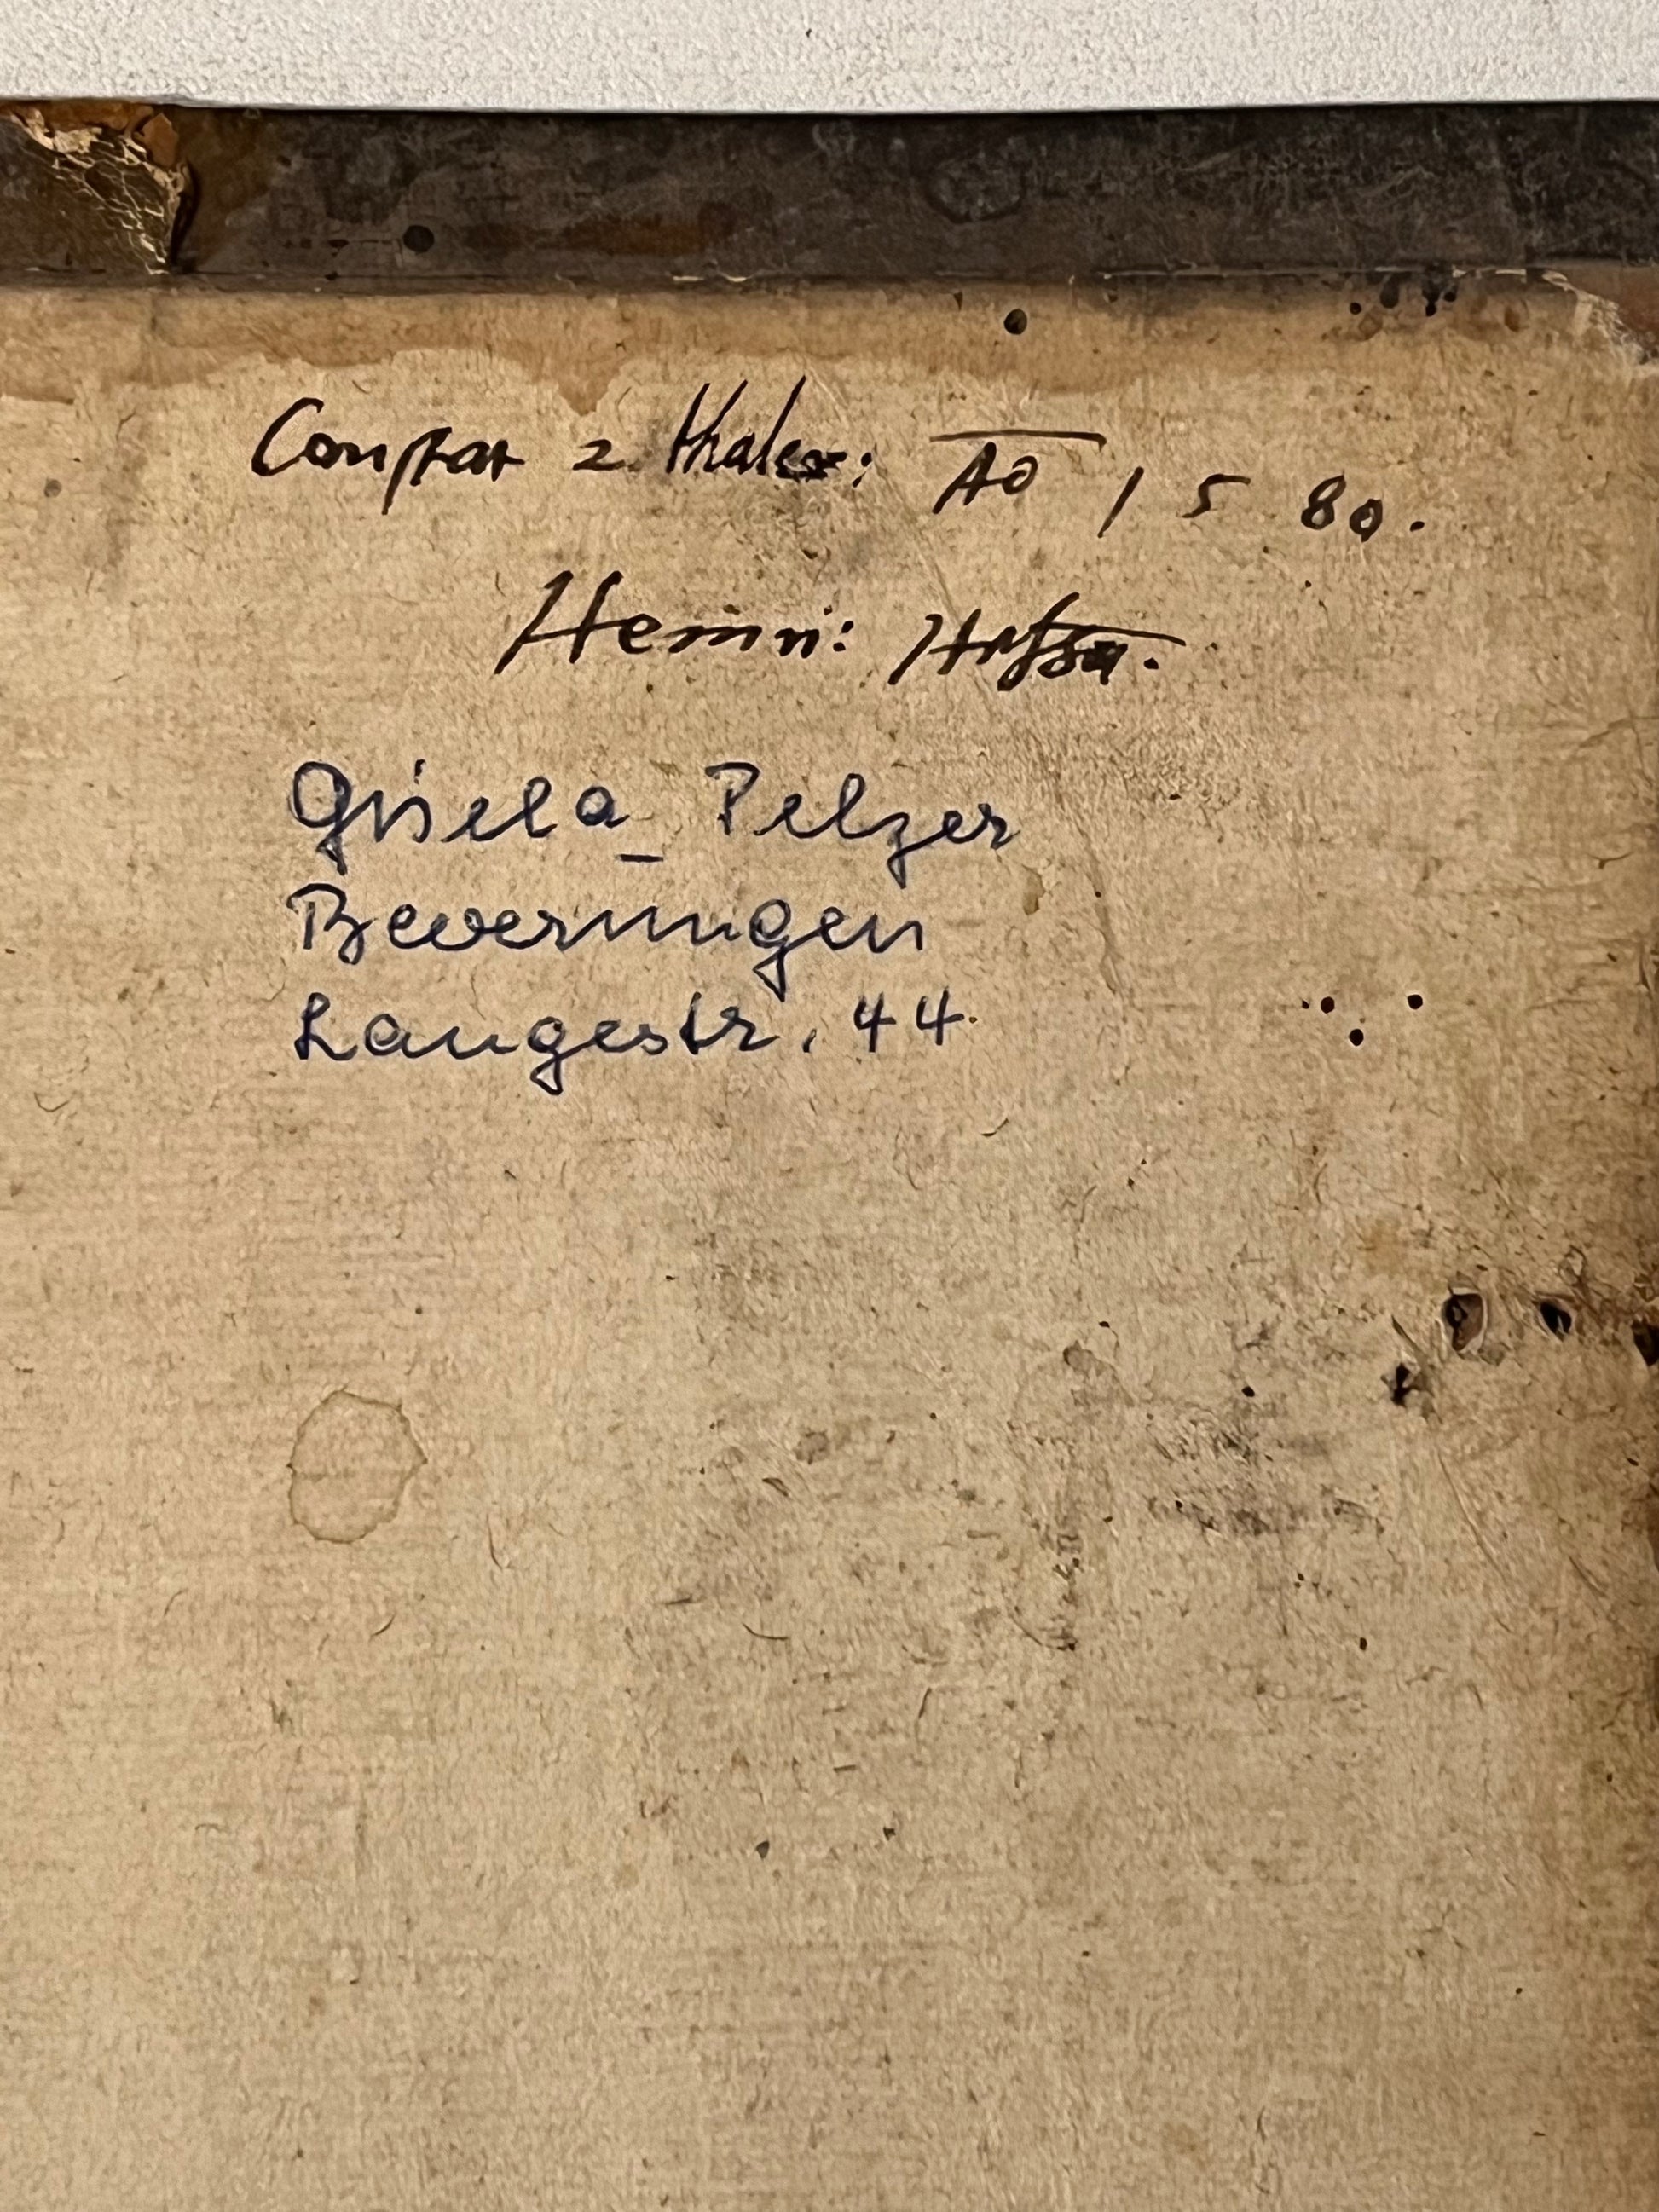 Constat 2 thaler: A0 1580.
Henri:
Gisela Pelzer
Beverungen
Langestr. 44